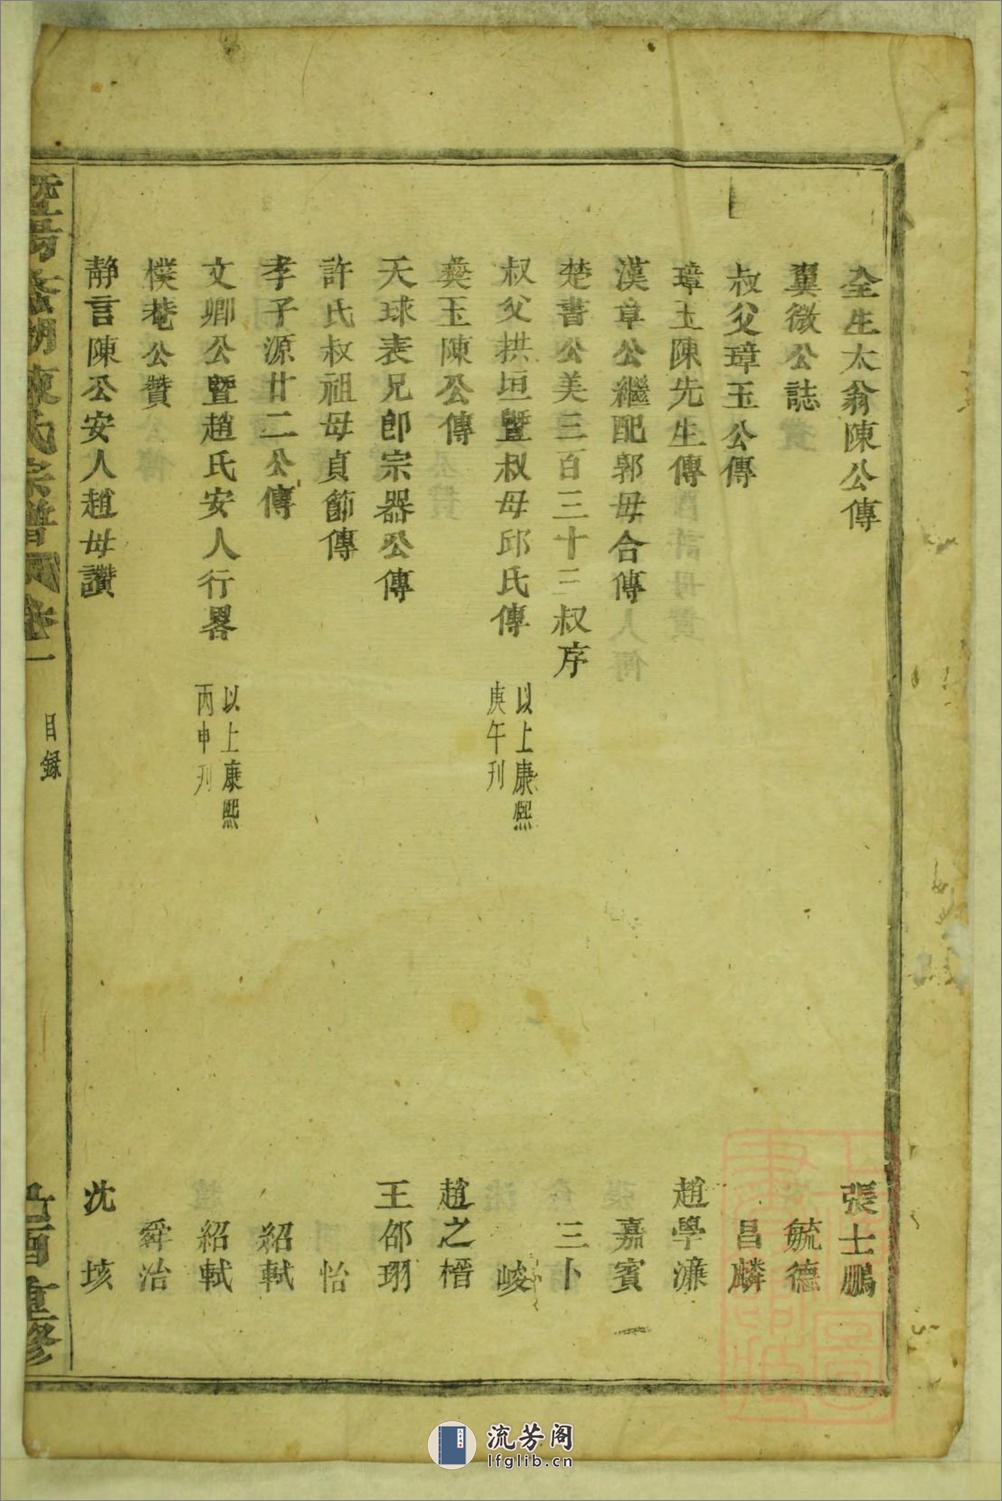 全生太翁陳公傳 張士鵬
翼微公誌 毓德
叔父璋玉公傳 昌麟
璋玉陳先生傳 趙學濂
漢章公繼配郭母合傳 嘉賓
楚書公美三百三十三叔序 三卜
叔父拱垣暨叔母邱氏傳 以上康熙庚午刋 峻
彜玉陳公傳 趙之榗
天球表兄卽宗器公傳 王邵珝
許氏叔祖母貞節傳 怡
孝子源廿二公傳 紹軾
文卿公暨趙氏安人行畧 以上康熙丙申刋 紹軾
樸菴公贊 舜治
静言陳公安人趙母讚 沈垓
陳氏宗譜 卷一 目録 重修
流芳阁
lfglib.cn